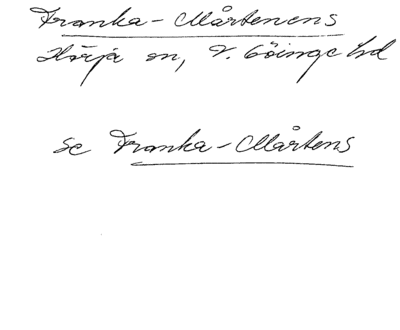 Franka-Mårtenens
Hörja sn, V. Göinge hd
se Franka-Mårtens